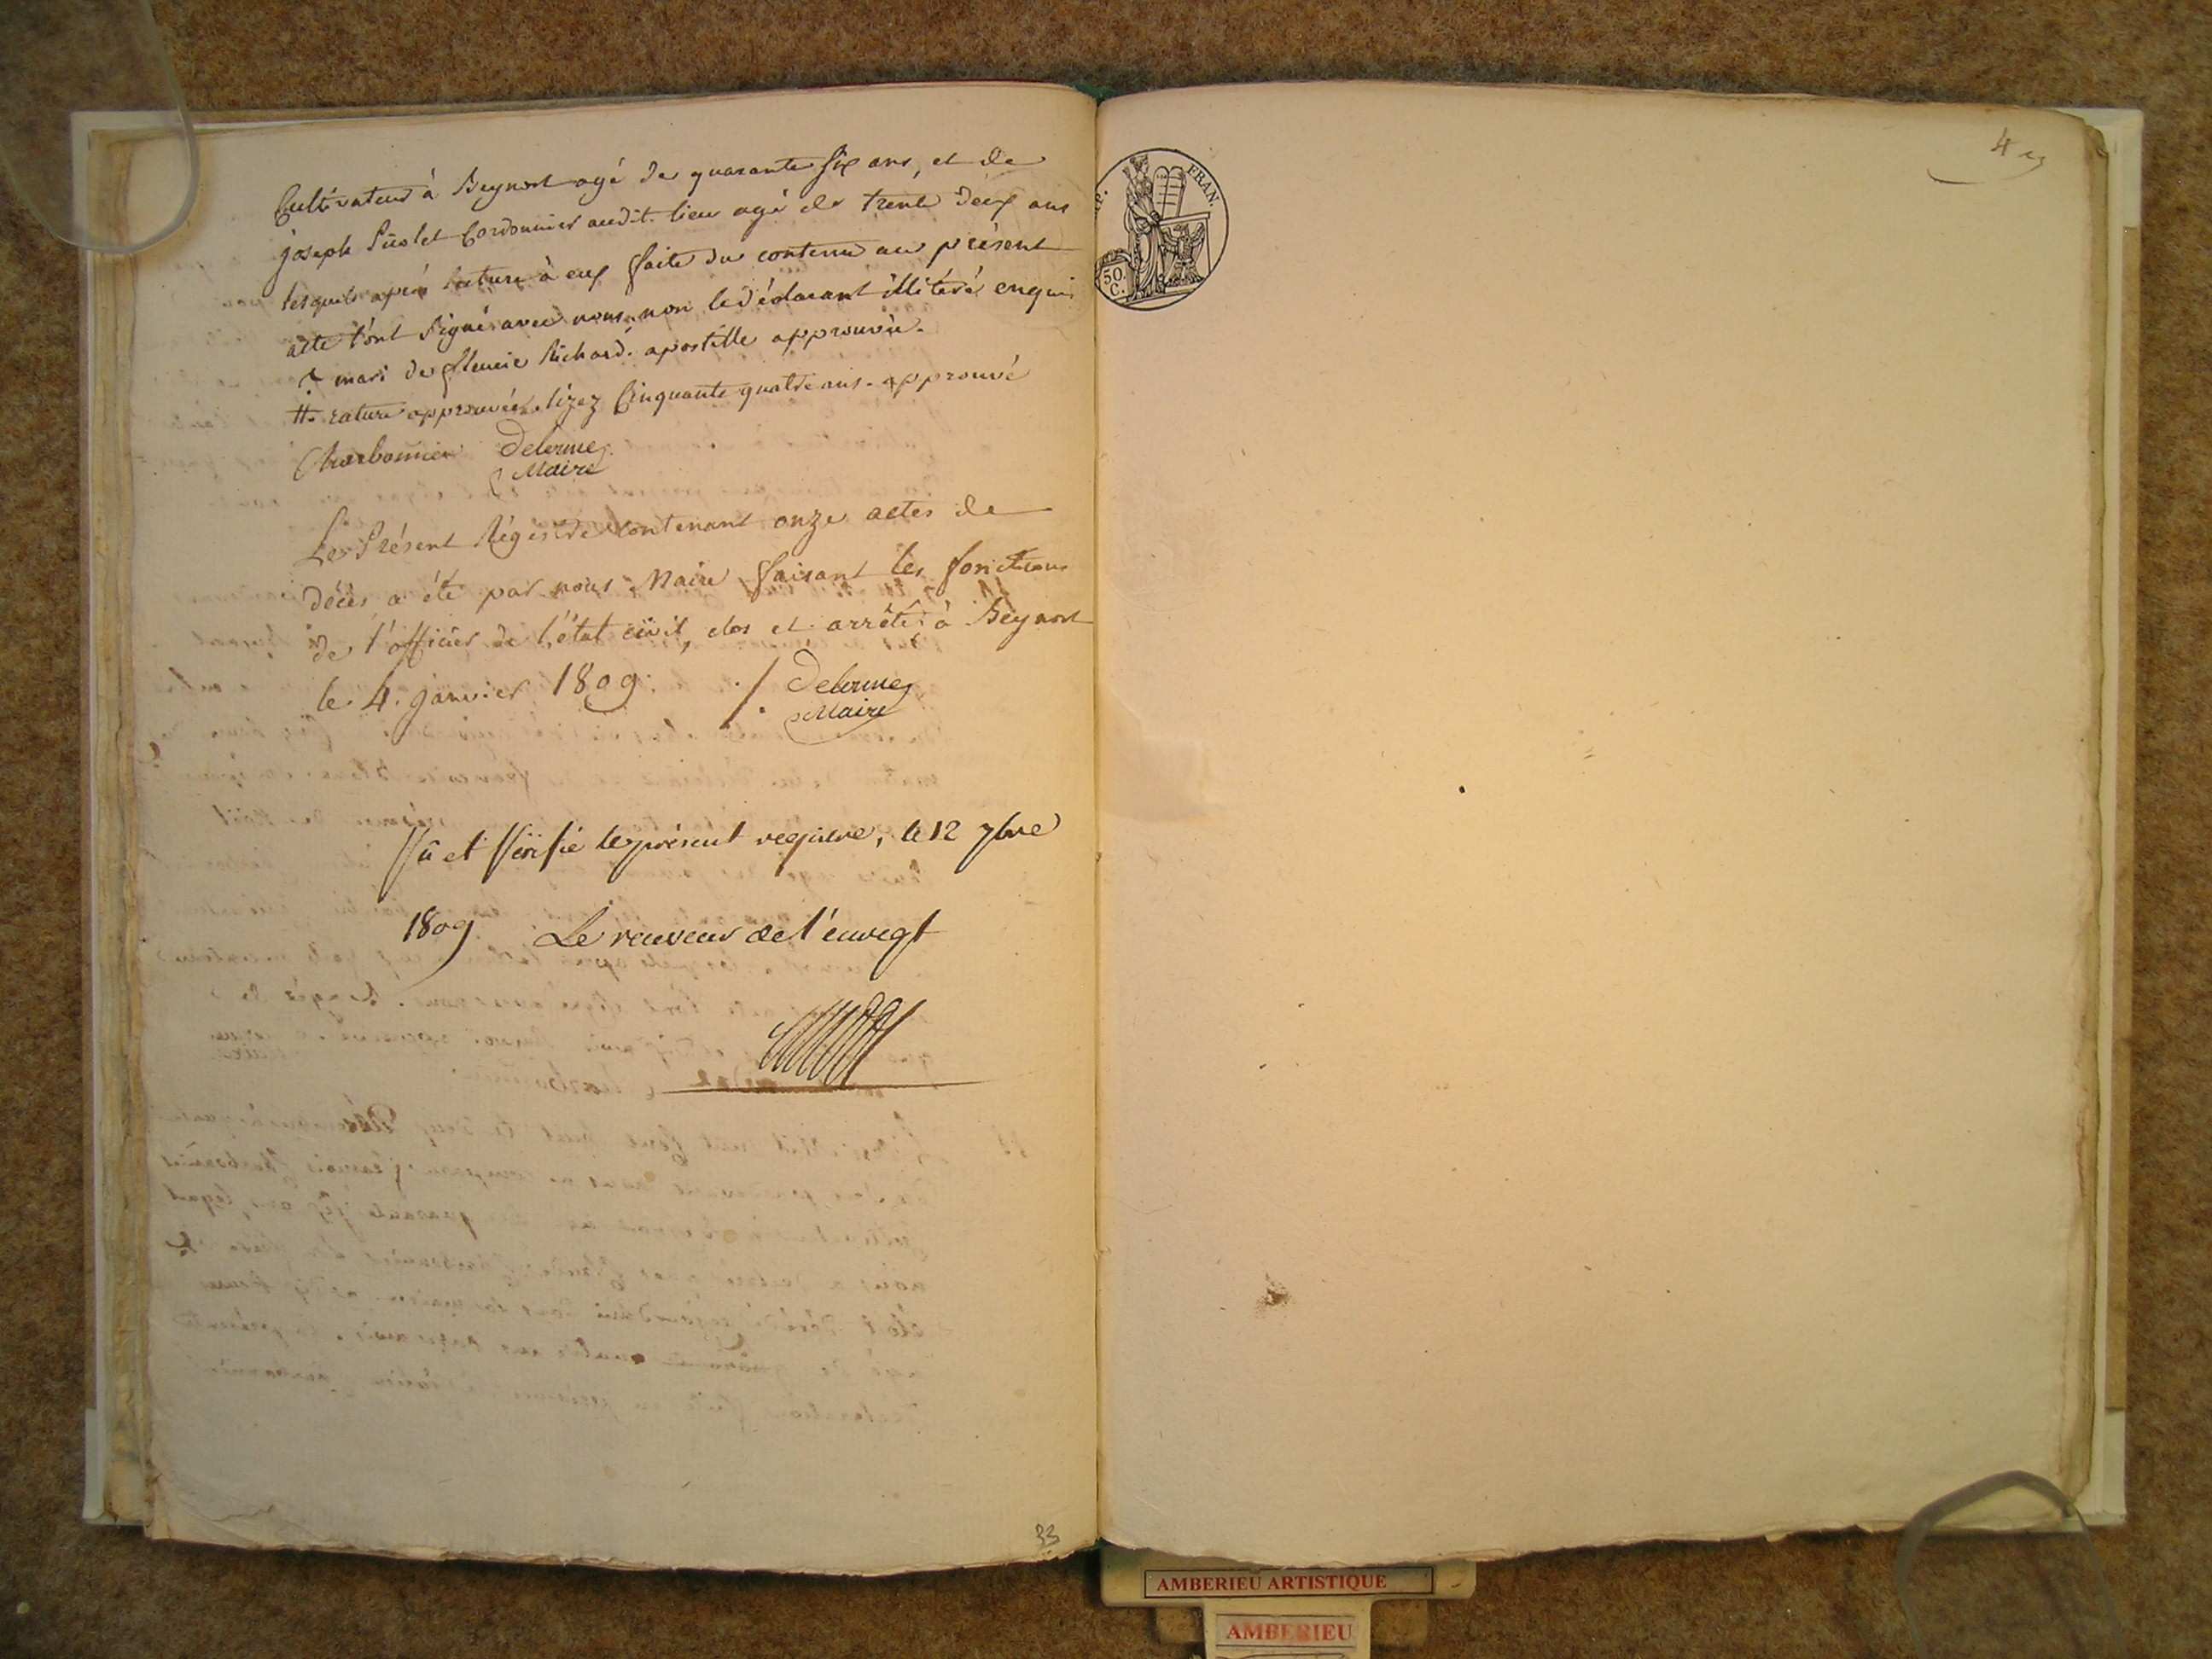 Cultivateur à Beynost agé de quarante six ans, et de
joseph cordonnier audit lieu agé de trente deux ans
lesquels après lecture à eux faite du contenu au présent
acte l'ont signé avec nous, non le déclarant illitéré enquis
mari de Richard. apostille approuvée.
rature approuvée lizez Cinquante quatre ans. approuvé
Charbonnier Delorme
Maire
Le Présent Régistre contenant onze actes de
décès a été par nous Maire faisant les fonctions
de l'officier de l'état civil, clos et arrêté à Beynost
le 4. janvier 1809. Delorme
Maire
Vû et Vérifié le présent registre, le 12 7bre
1809 Le receveur de l'enregt
33
4
FRAN.
50.
C.
AMBERIEU ARTISTIQUE
AMBERIEU